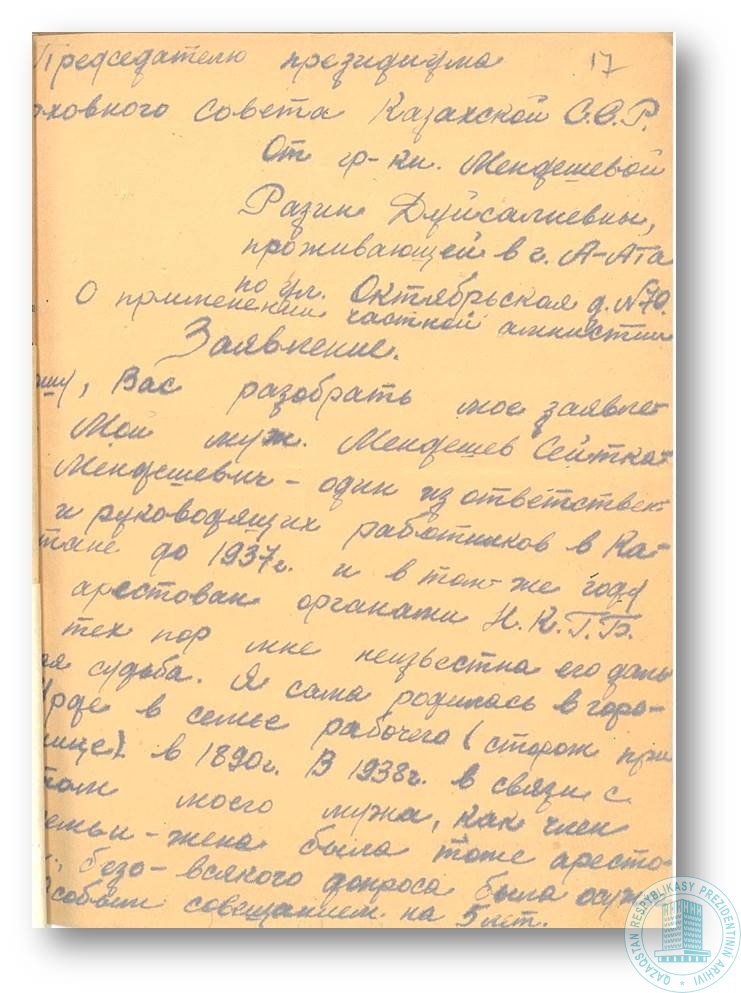 Председателю президиума 17
рховного совета Казахской С.С.Р.
От гр-ки. Мендешевой
Разии Дуйсалиевны,
проживающей в г. А-Ата
по ул. Октябрьская д. №70.
О применении частной амнистии
Заявление.
ошу, Вас разобрать мое заявле-
Мой муж. Мендешев Сейтка-
Мендешевич - один из ответствен
и руководящих работников в Ка-
тане до 1937г. и в том-же году
арестован органами Н.К.Г.Б.
тех пор мне неизвестна его даль
ая судьба. Я сама родилась в горо-
Урде в семье рабочего (сторож при
нице) в 1890г. В 1938г. в связи с
том моего мужа, как член
емьи - жена была тоже аресто-
безо-всякого допроса была осуж
Особым совещанием на 5 лет.
QAZAQSTAN RESPÝBLIKASY PREZIDENTINIŃ ARHIVI